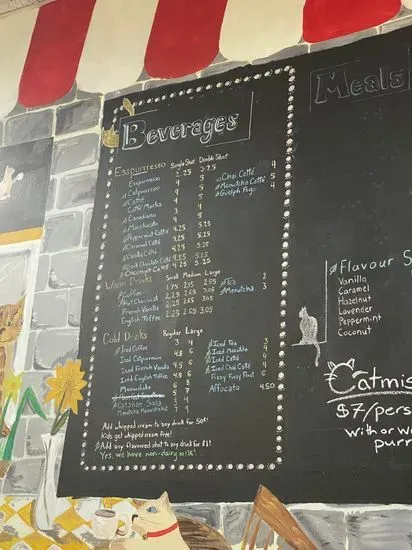 Beverages
Esspurresso Single Shot Double Shot
Esspurresso 2.25 3.25
Catpuccino 4 5
Catté 4 5
Catté Mocha 4 5
Canadiano 3 4
Macchicato 4 5
Peppermint Catté 4.25 5.25
Caramel Catté 4.25 5.25
Vanilla Catté 4.25 5.25
Salt Chocolate Catté 4.25 5.25
Coconut Catté 4.25 5.25
Chai Catté 4
Meowtcha Catté 5
Guelph Fog 4
Warm Drinks Small Medium Large
Coffee 1.75 2.15 2.55
Hot Chocolate 2.25 2.65 3.05
French Vanilla 2.25 2.65 3.05
English Toffee 2.25 2.65 3.05
Tea 2
Meowtcha 3
Cold Drinks Regular Large
Iced Coffee 3 4
Iced Catpuccino 4.5 6
Iced French Vanilla 4.5 6
Iced English Toffee 4.5 6
Meowshake 6 8
Catalian Soda 3 4
7 9
Iced Tea 3
Iced Meowtcha 4
Iced Catté 4
Iced Chai Catté 4
Fizzy Fuzzy Fred 6
Affocato 4.50
Add whipped cream to any drink for 50¢!
Kids get whipped cream free!
Add any flavoured shot to any drink for $1!
Yes, we have non-dairy milk!
Meals
Flavour S
Vanilla
Caramel
Hazelnut
Lavender
Peppermint
Coconut
Catmis
$7/pers
with or w
purr